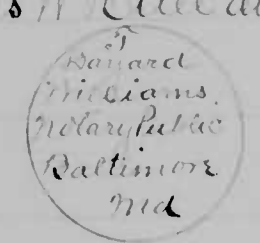 T
Havard
Williams.
Notary Public
Baltimore
Md